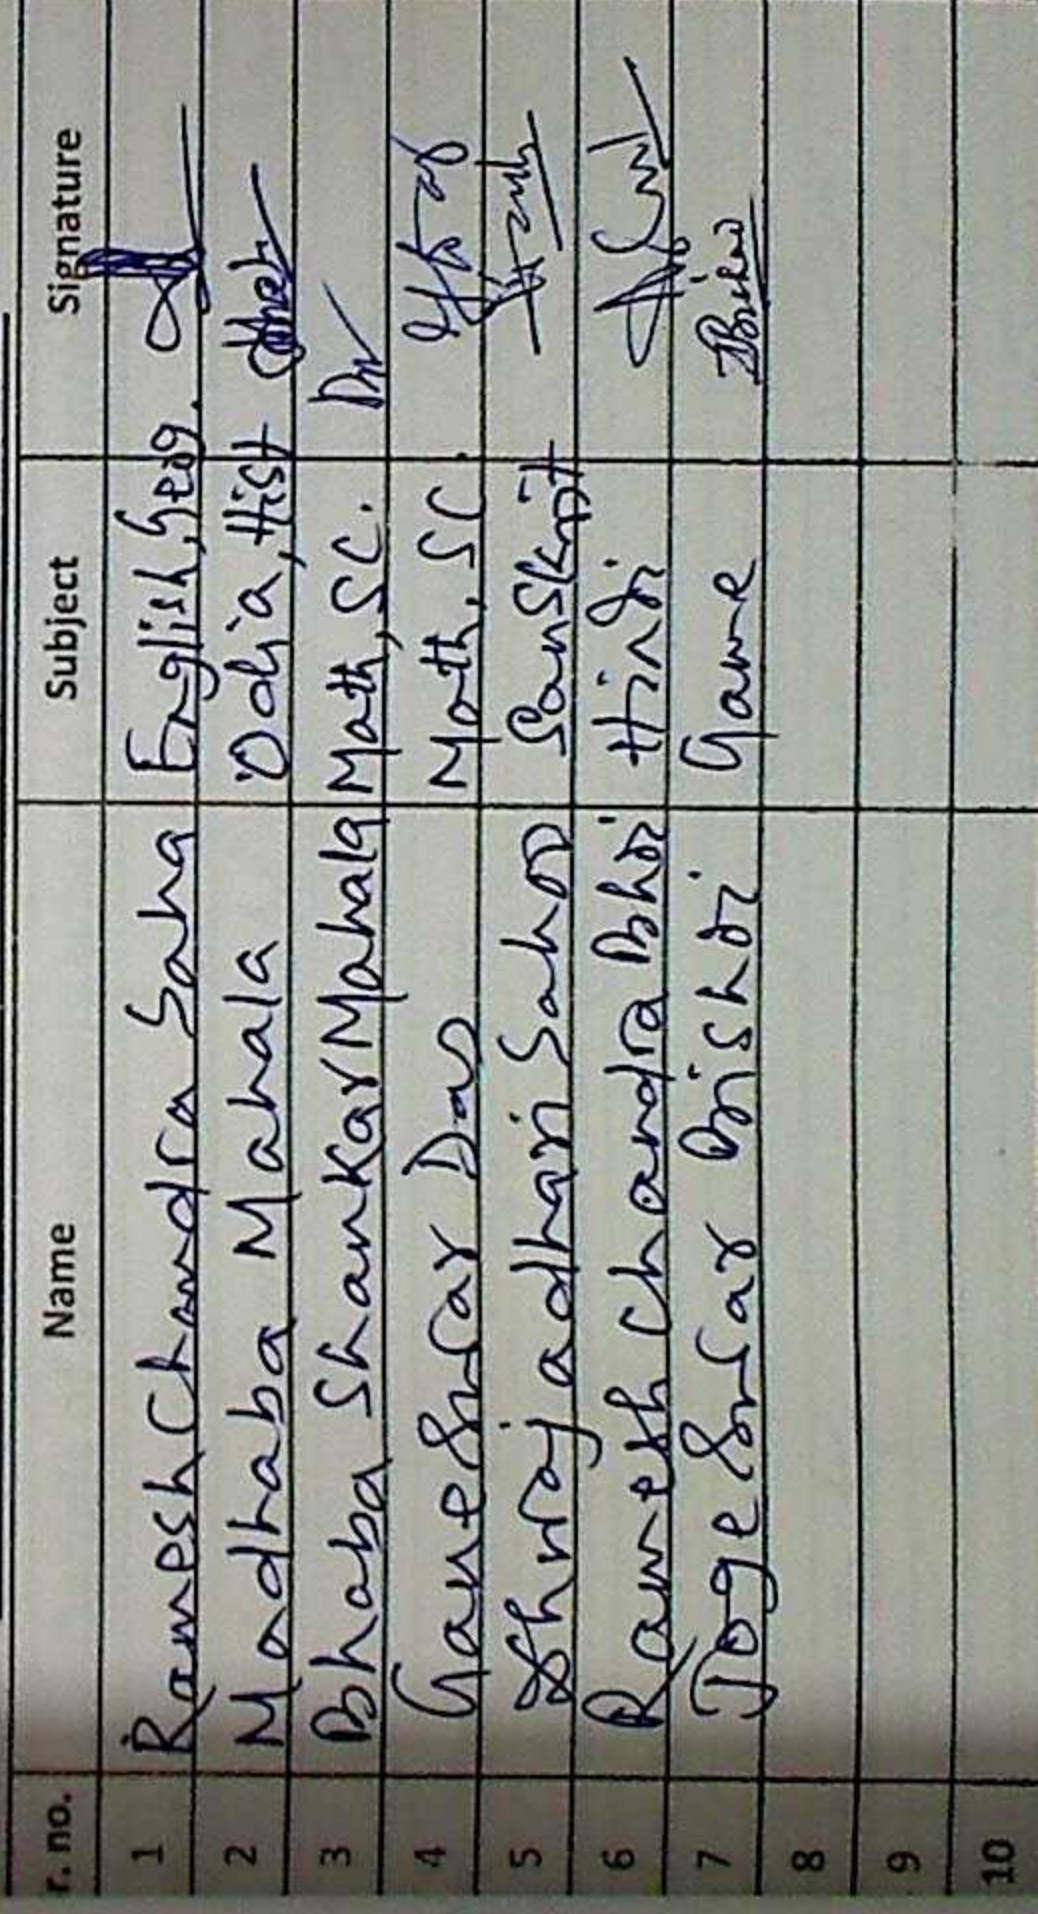 r. no. Name Subject Signature
1 Ramesh Chandra Saha English, Geog.
2 Madhaba Mahala Odia, Hist
3 Bhaba Shankar Mahala Math, SC.
4 Ganeswar Das Math, SC
5 Sahoo Sanskrit
6 Ramesh Chandra Bhoi Hindi
7 Jogeswar Bishoi Game
8
9
10